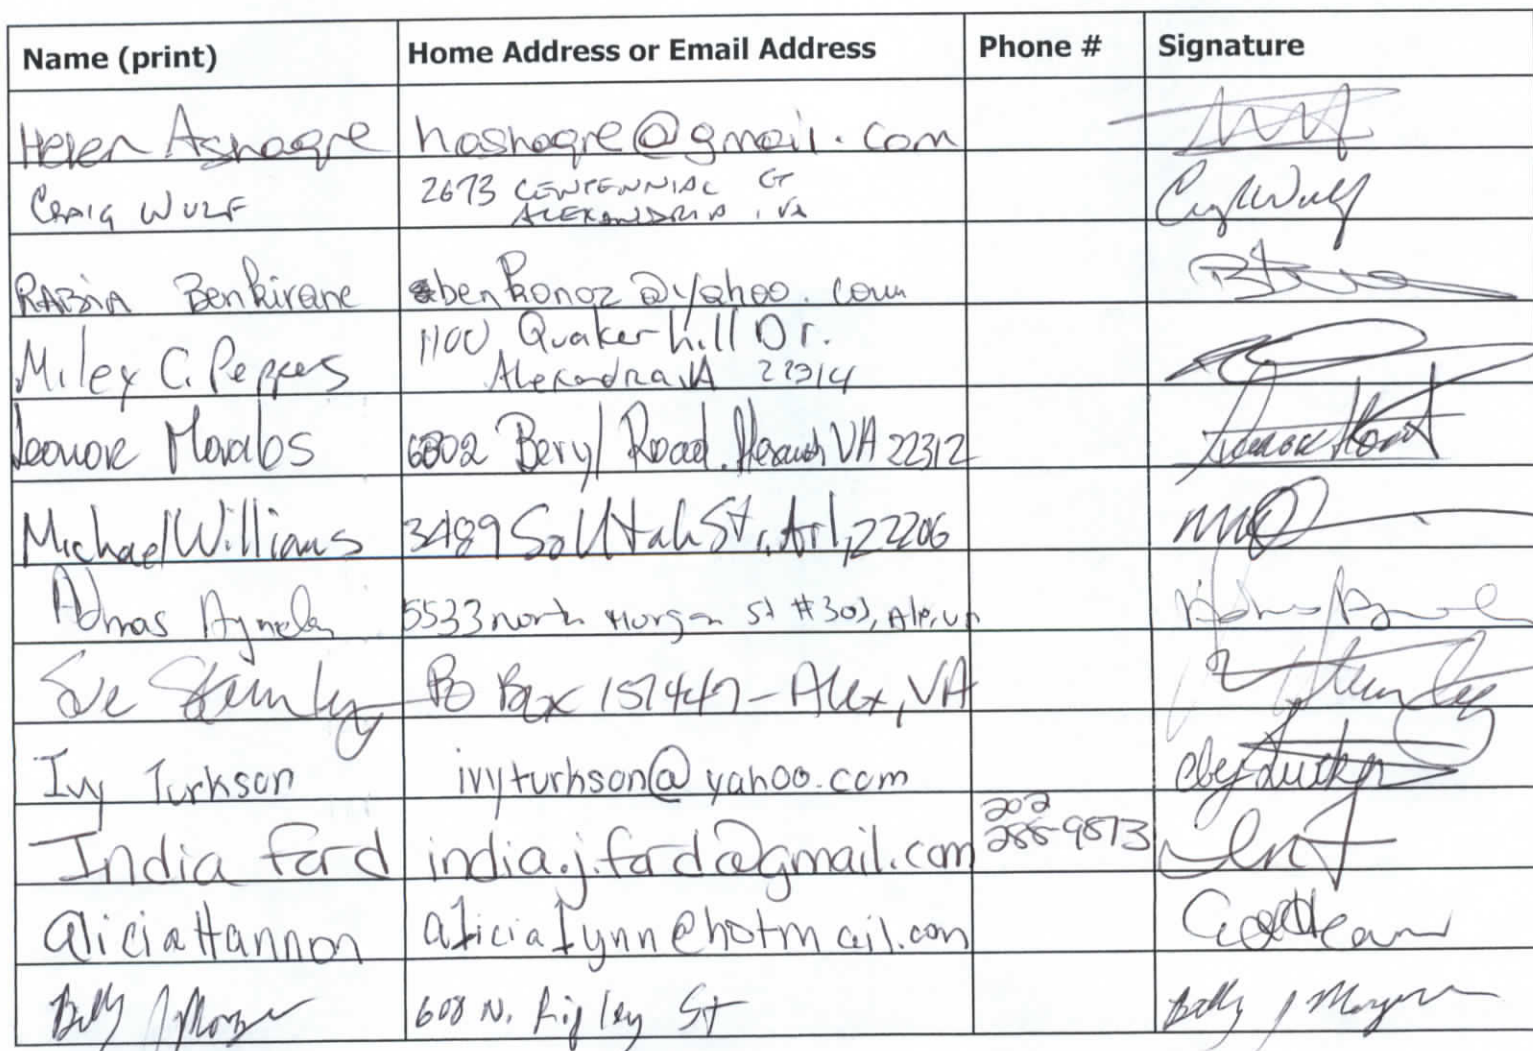 Name (print) Home Address or Email Address Phone # Signature
Helen Ashagre hashagre@gmail.com
CRAIG WULF 2673 CENTENNIAL CT
ALEXANDRIA, VA
Craig Wulf
RABIA Benkirane benkonoz@yahoo.com
Miley C. Peppes 1100 Quaker hill Dr.
Alexandria VA 22314
Leonor Morales 6802 Beryl Road. VA 22312
Michael Williams 3489 So Utah St, Arl, 22206
Admas 5533 north Morgan St #303, Alx, VA
Sue Stanley PO Box 157447 - Alex, VA
Ivy Turkson ivyturkson@yahoo.com
India Ford india.j.ford@gmail.com 202
288-9873
alicia Hannon alicialynn@hotmail.com
Billy J Morgan 608 N. Ripley St Billy J Morgan